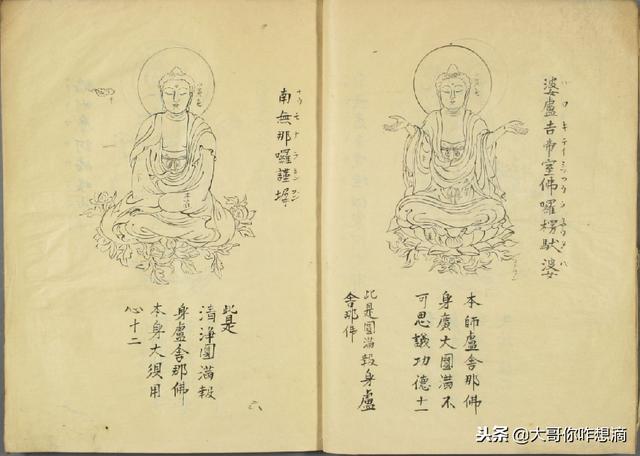 婆盧吉帝室佛囉楞馱婆
本師盧舍那佛
身廣大圓滿不
可思議功德十一
此是圓滿報身盧
舍那佛
南無那囉謹墀
此是
清淨圓滿報
身盧舍那佛
本身大須用
心十二
头条 @大哥你咋想滴